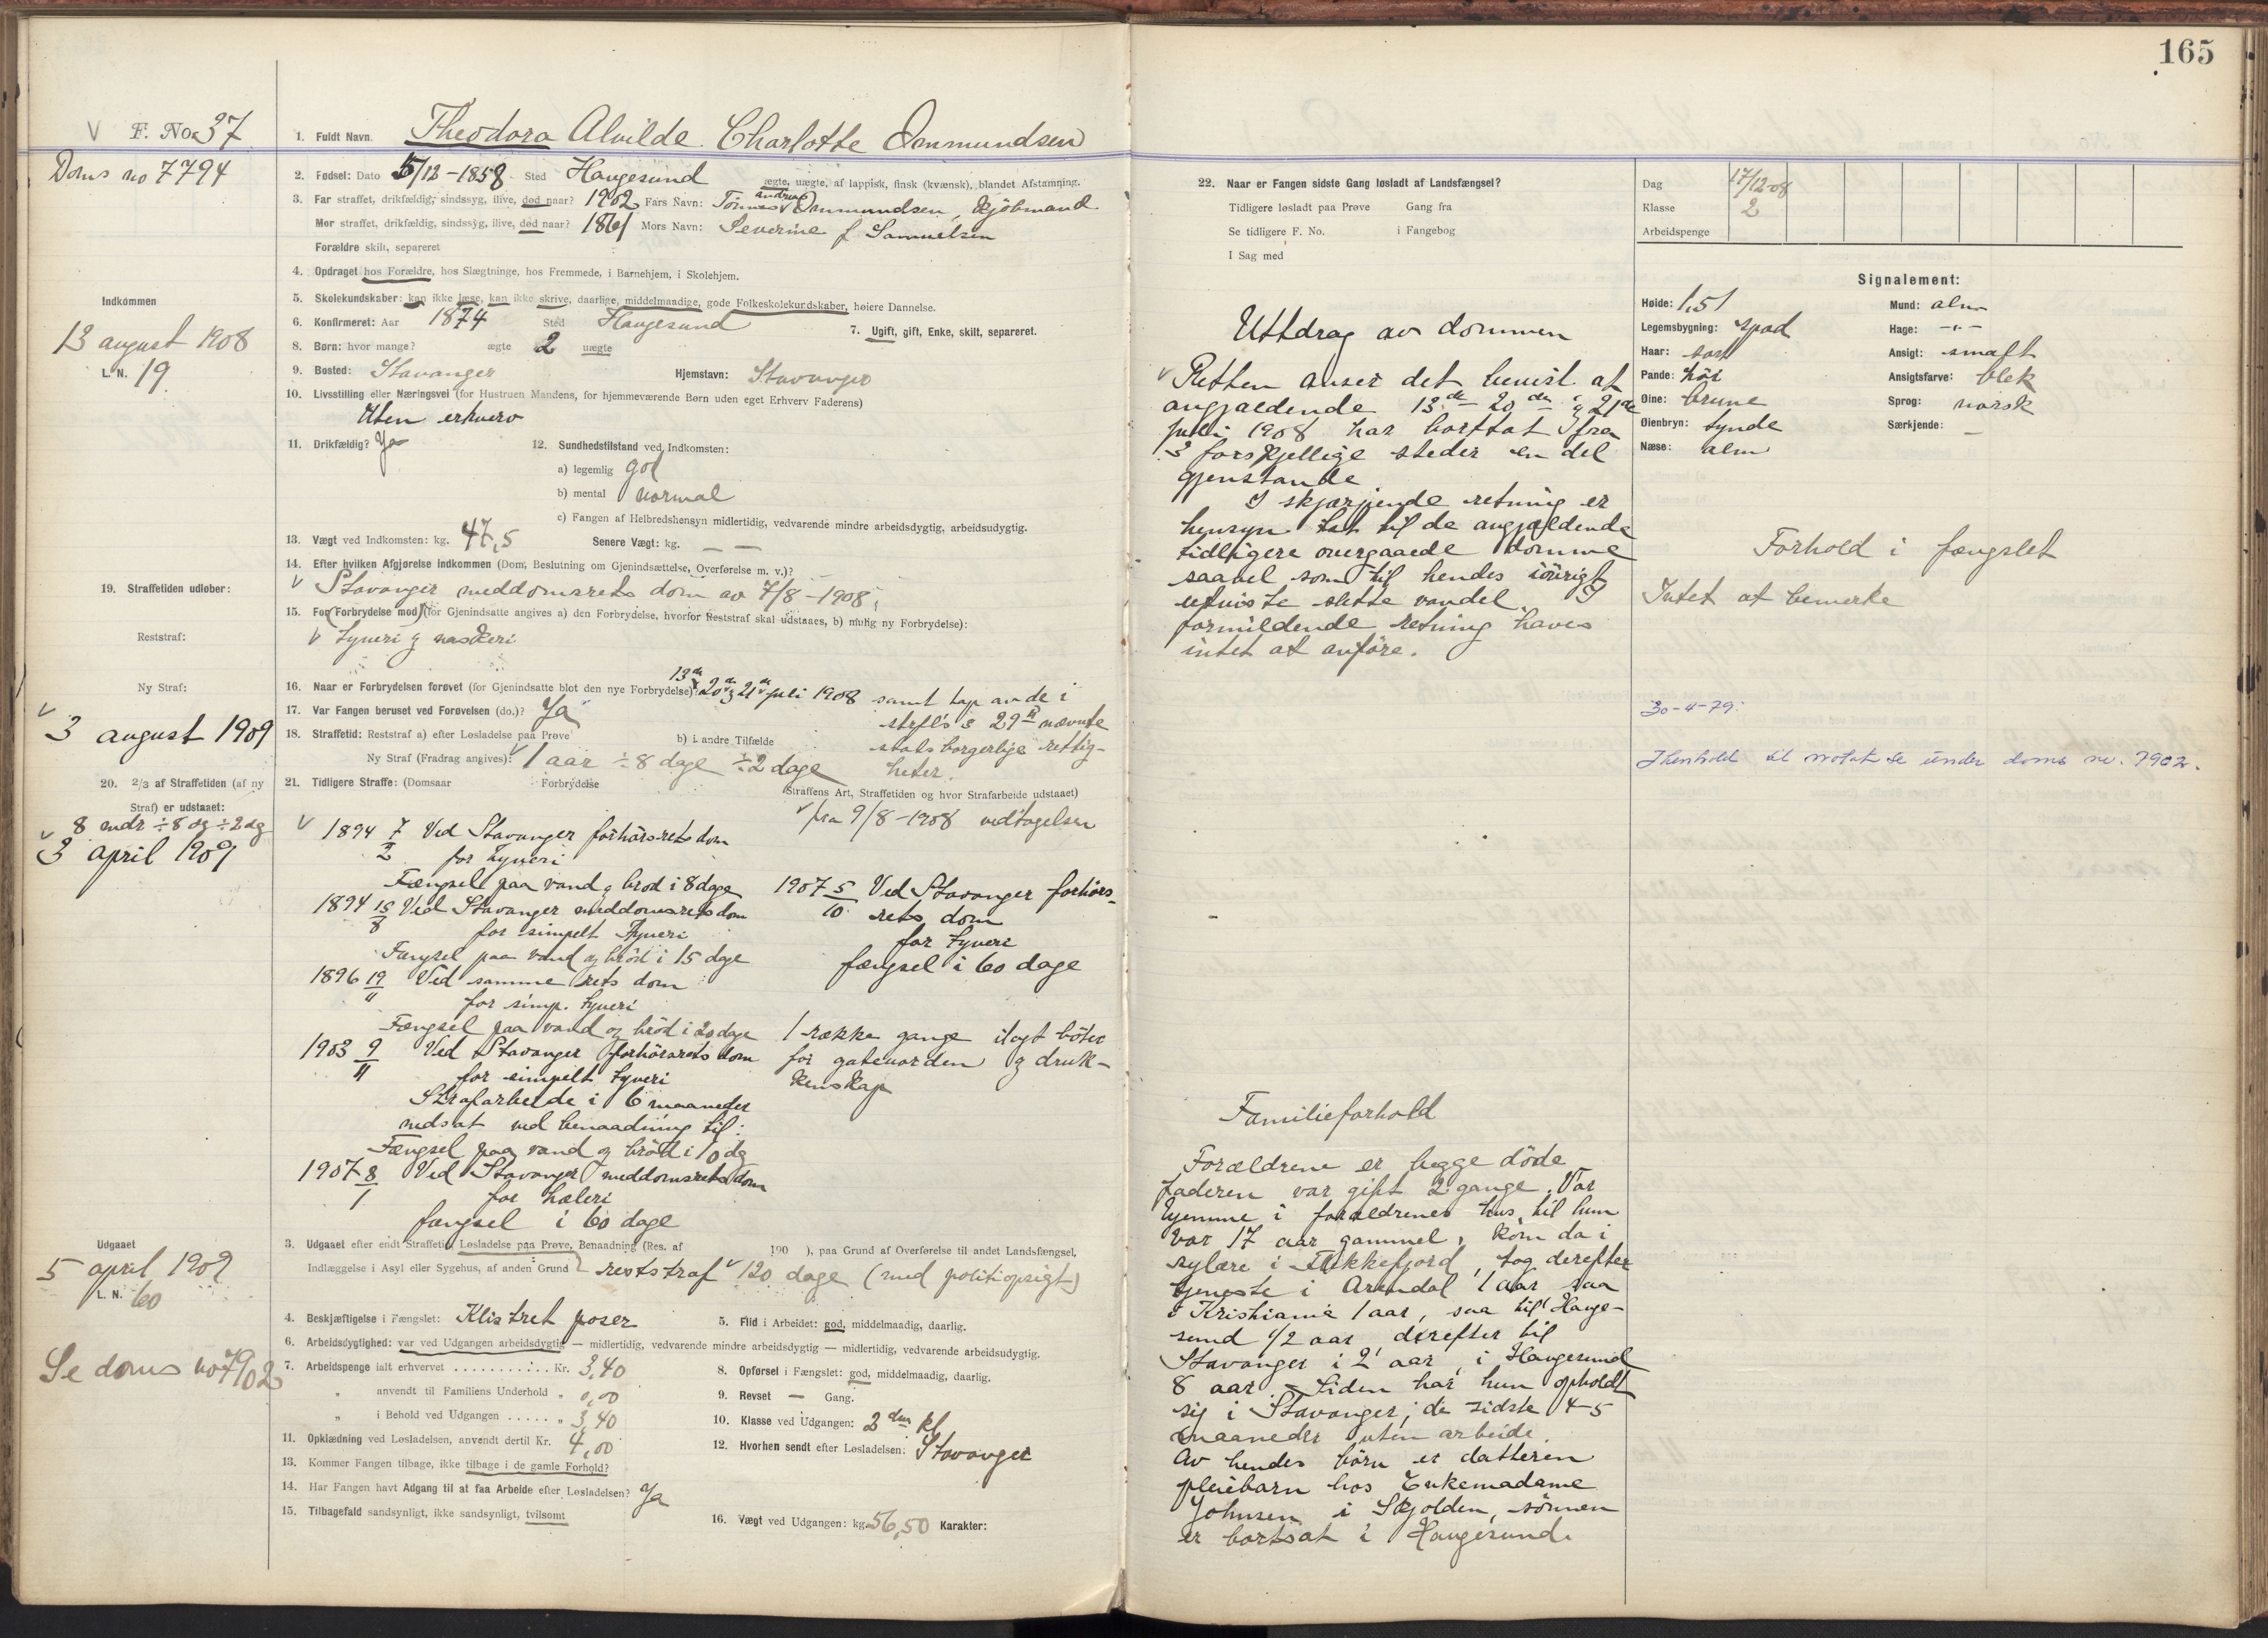 165
V F. No. 37
Doms no 7794
1. Fuldt Navn. Theodora Alvilde Charlotte Ommundsen
2. Fødsel: Dato 5/12-1858 Sted Haugesund ægte, uægte, af lappisk, finsk (kvænsk), blandet Afstamning.
3. Far straffet, drikfældig, sindssyg, ilive, død naar? 1902 Fars Navn: Tönnes Ommundsen, kjöbmand
Mor straffet, drikfældig, sindssyg, ilive, død naar? 1861 Mors Navn: Severine f. Samuelsen
Forældre skilt, separeret
4. Opdraget hos Forældre, hos Slægtninge, hos Fremmede, i Barnehjem, i Skolehjem.
Indkommen
13 august 1908
L. N. 19
5. Skolekundskaber: kan ikke læse, kan ikke skrive, daarlige, middelmaadige, gode Folkeskolekundskaber, høiere Dannelse.
6. Konfirmeret: Aar 1874 Sted Haugesund 7. Ugift, gift, Enke, skilt, separeret.
8. Børn: hvor mange? ægte 2 uægte
9. Bosted: Stavanger Hjemstavn: Stavanger
10. Livsstilling eller Næringsvei (for Hustruen Mandens, for hjemmeværende Børn uden eget Erhverv Faderens)
Uten erhverv
11. Drikfældig? Ja 12. Sundhedstilstand ved Indkomsten:
a) legemlig god
b) mental normal
c) Fangen af Helbredshensyn midlertidig, vedvarende mindre arbeidsdygtig, arbeidsudygtig.
13. Vægt ved Indkomsten: kg. 47,5 Senere Vægt: kg. — —
14. Efter hvilken Afgjørelse indkommen (Dom, Beslutning om Gjenindsættelse, Overførelse m. v.)?
V Stavanger meddomsrets dom av 7/8-1908.
19. Straffetiden udløber:
15. For Forbrydelse mod (for Gjenindsatte angives a) den Forbrydelse, hvorfor Reststraf skal udstaaes, b) mulig ny Forbrydelse):
V tyveri og naskeri
Reststraf:
Ny Straf:
V
3 august 1909
16. Naar er Forbrydelsen forøvet (for Gjenindsatte blot den nye Forbrydelse): 13de 20de og 21de juli 1908 samt tap av de i
17. Var Fangen beruset ved Forøvelsen (do.)? Ja strfl's § 29 nævnte
18. Straffetid: Reststraf a) efter Løsladelse paa Prøve b) i andre Tilfælde statsborgerlige rettig-
Ny Straf (Fradrag angives): V 1 aar ÷ 8 dage ÷ 2 dage heter.
20. 2/3 af Straffetiden (af ny Straf) er udstaaet:
8 mdr ÷ 8 dg ÷ 2 dg
V
3 april 1909
21. Tidligere Straffe: (Domsaar Forbrydelse Straffens Art, Straffetiden og hvor Strafarbeide udstaaet)
V fra 9/8-1908 vedtagelsen
V 1894 7/2 Ved Stavanger forhörsrets dom
for tyveri
Fængsel paa vand og bröd i 8 dage
1894 18/8 Ved Stavanger meddomsrets dom
for simpelt tyveri
Fængsel paa vand og bröd i 15 dage
1896 19/11 Ved samme rets dom
for simp. tyveri
Fængsel paa vand og bröd i 20 dage
1903 9/11 Ved Stavanger forhörsrets dom
for simpelt tyveri
Strafarbeide i 6 maaneder
nedsat ved benaadning til:
Fængsel paa vand og bröd i 10 dg
1907 8/1 Ved Stavanger meddomsrets dom
for hæleri
fængsel i 60 dage
1907 5/10 Ved Stavanger forhörs-
rets dom
for tyveri
fængsel i 60 dage
1 række gange ilagt böter
for gateuorden og druk-
kenskap
Udgaaet
5 april 1909
L. N. 60
3. Udgaaet efter endt Straffetid, Løsladelse paa Prøve, Benaadning (Res. af 190 ), paa Grund af Overførelse til andet Landsfængsel,
Indlæggelse i Asyl eller Sygehus, af anden Grund reststraf V 120 dage (med politiopsigt)
4. Beskjæftigelse i Fængslet: Klistret poser 5. Flid i Arbeidet: god, middelmaadig, daarlig.
6. Arbeidsdygtighed: var ved Udgangen arbeidsdygtig — midlertidig, vedvarende mindre arbeidsdygtig — midlertidig, vedvarende arbeidsudygtig.
Se doms no 7902
7. Arbeidspenge ialt erhvervet . . . . . . . . . . Kr. 3,40 8. Opførsel i Fængslet: god, middelmaadig, daarlig.
" anvendt til Familiens Underhold " 0,00 9. Revset — Gang.
" i Behold ved Udgangen . . . . . " 3,40 10. Klasse ved Udgangen: 2den kl
11. Opklædning ved Løsladelsen, anvendt dertil Kr. 4,00 12. Hvorhen sendt efter Løsladelsen: Stavanger
13. Kommer Fangen tilbage, ikke tilbage i de gamle Forhold?
14. Har Fangen havt Adgang til at faa Arbeide efter Løsladelsen? Ja
15. Tilbagefald sandsynligt, ikke sandsynligt, tvilsomt
16. Vægt ved Udgangen: kg. 56,50 Karakter:
22. Naar er Fangen sidste Gang løsladt af Landsfængsel?
Tidligere løsladt paa Prøve Gang fra
Se tidligere F. No. i Fangebog
I Sag med
Uttdrag av dommen
V Retten anser det bevist at
angjældende 13de 20de og 21de
juli 1908 har borttat fra
3 forskjellige steder en del
gjenstande
I skjærpende retning er
hensyn tat til de angjældende
tidligere overgaaede domme
saavel som til hendes iövrigt
utviste slette vandel. I
formildende retning haves
intet at anföre.
Familieforhold
Forældrene er begge döde
faderen var gift 2 gange. Var
hjemme i forældrenes hus til hun
var 17 aar gammel, kom da i
sylære i Flekkefjord, tog derefter
tjeneste i Arendal 1 aar saa
i Kristiania 1 aar, saa til Hauge-
sund 1/2 aar derefter til
Stavanger i 2 aar, i Haugesund
8 aar. Siden har hun opholdt
sig i Stavanger, de sidste 4-5
maaneder uten arbeide.
Av hendes börn er datteren
pleiebarn hos Enkemadame
Johnsen i Skjolden, sönnen
er bortsat i Haugesund.
Dag 17/12-08
Klasse 2
Arbeidspenge
Signalement:
Høide: 1,51 Mund: alm
Legemsbygning: spæd Hage: -"-
Haar: sort Ansigt: smalt
Pande: höi Ansigtsfarve: blek
Øine: brune Sprog: norsk
Øienbryn: tynde Særkjende: —
Næse: alm
Forhold i fængslet
Intet at bemerke
30-4-79:
I henhold til notat se under doms nr. 7902.